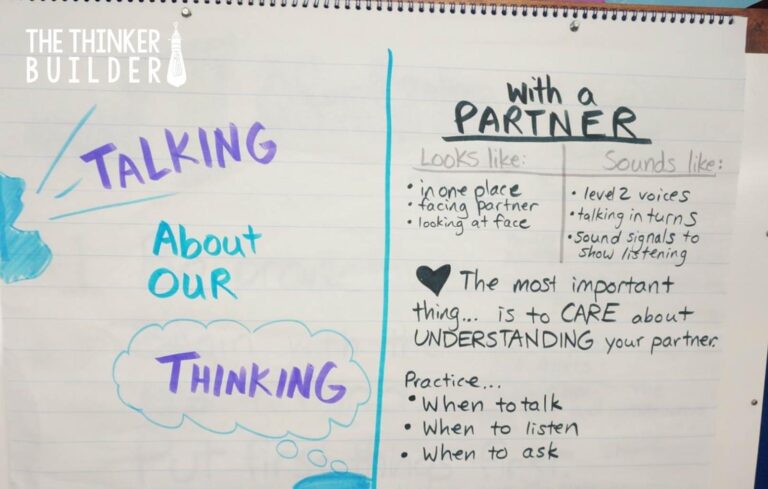 THE THINKER
BUILDER
TALKING
About
OUR
THINKING
with a
PARTNER
Looks like:
• in one place
• facing partner
• looking at face
Sounds like:
• level 2 voices
• talking in turns
• sound signals to
show listening
The most important
thing... is to CARE about
UNDERSTANDING your partner.
Practice...
• When to talk
• When to listen
• When to ask